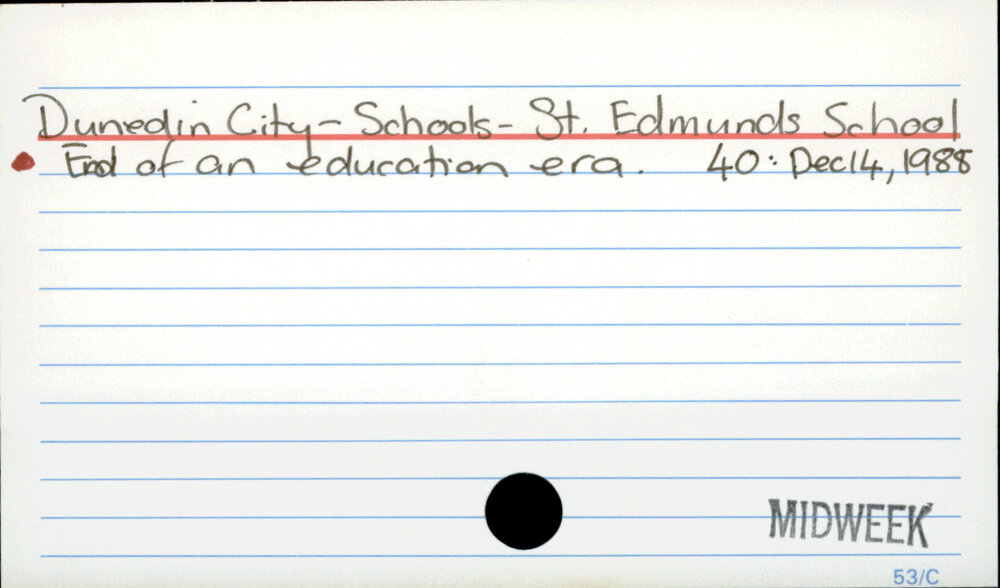 Dunedin City - Schools - St. Edmunds School
End of an education era. 40: Dec14, 1988
MIDWEEK
53/C